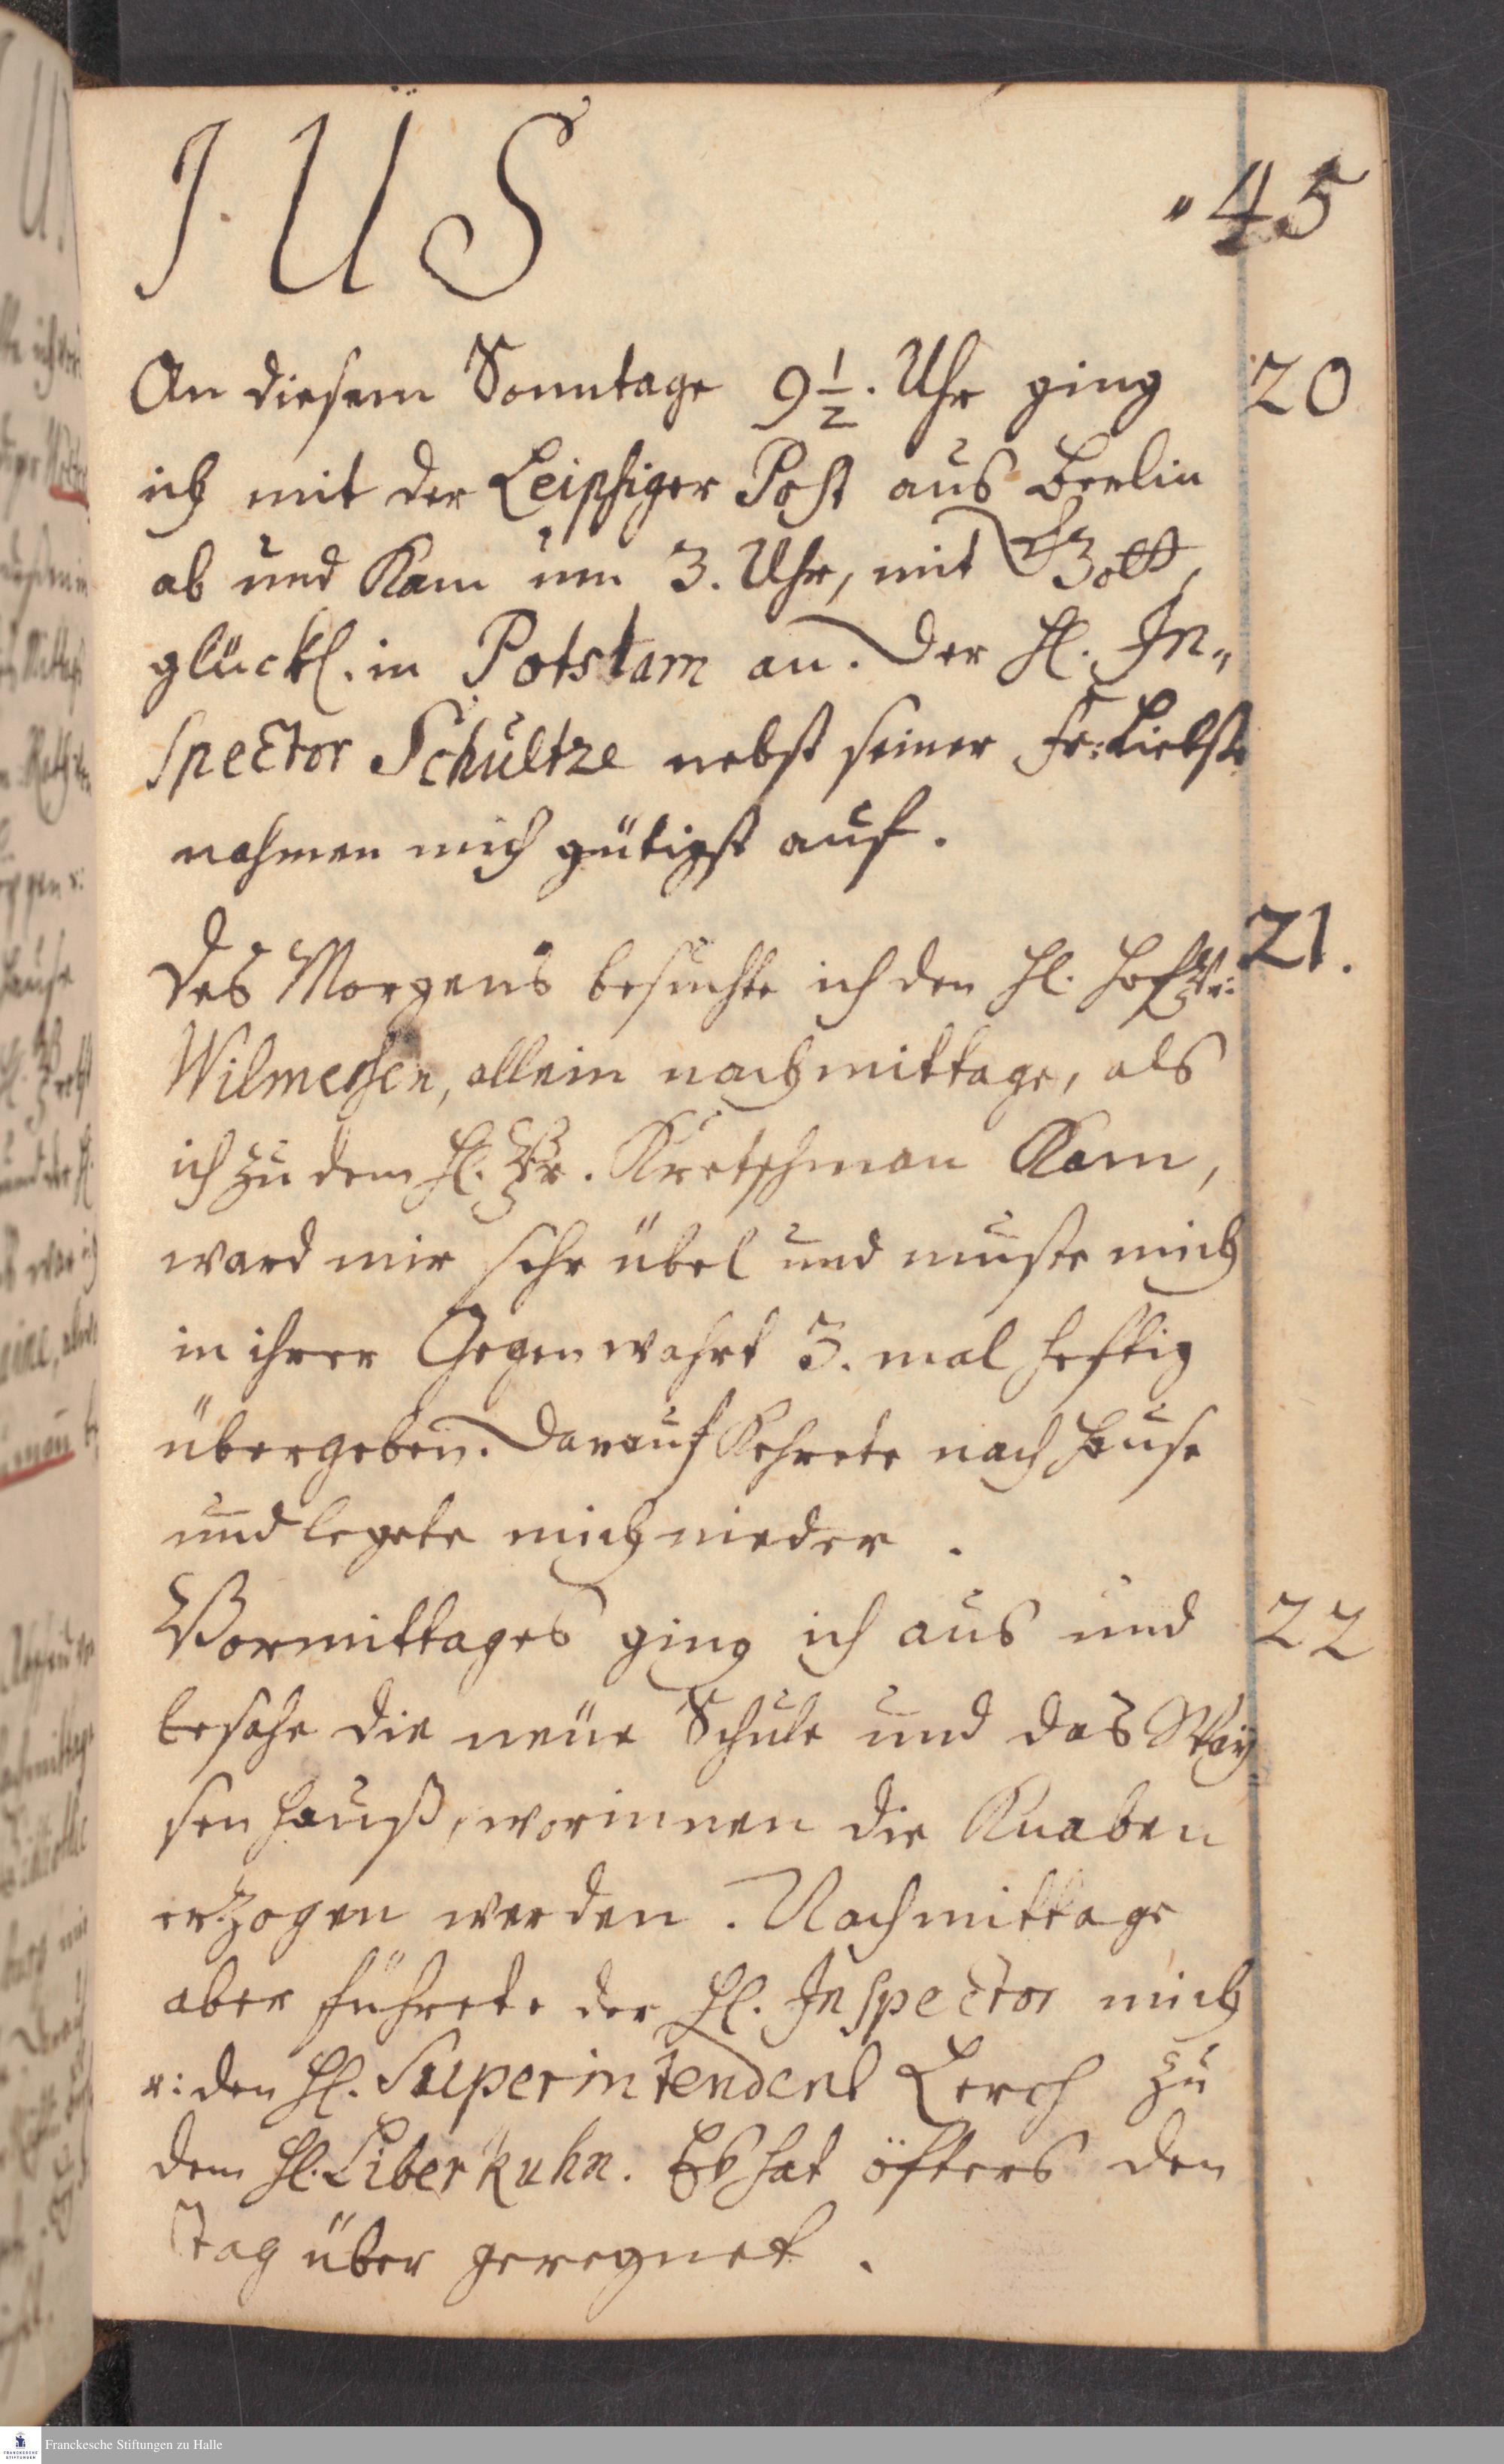 I. US
45
An diesem Sonntage 9 1/2. Uhr ging 20
ich mit der Leipsiger Post aus Berlin
ab und Kam um 3. Uhr, mit Gott,
glückl. in Potstam an. Der H. In„
spector Schultze nebst seiner Fr: Liebste
nahmen mich gütigst auf.
Des Morgens besuchte ich den H. Hof 21.
Wilmessen, allein nachmittage, als
ich zu dem H. Kretschman Kam,
ward mir sehr übel und muste mich
in ihrer Gegenwahrt 3. mal heftig
übergeben. Darauf Kehrete nach Hause
und legete mich nieder.
Vormittages ging ich aus und 22
besahe die neue Schule und das Way
sen Hauß, worinnen die Knaben
erzogen werden. Nachmittage
aber führete der H. Inspector mich
u: den H. Superintendent Lerch zu
dem H. Liberkuhn. Es hat öfters den
Tag über geregnet.
Franckesche Stiftungen zu Halle